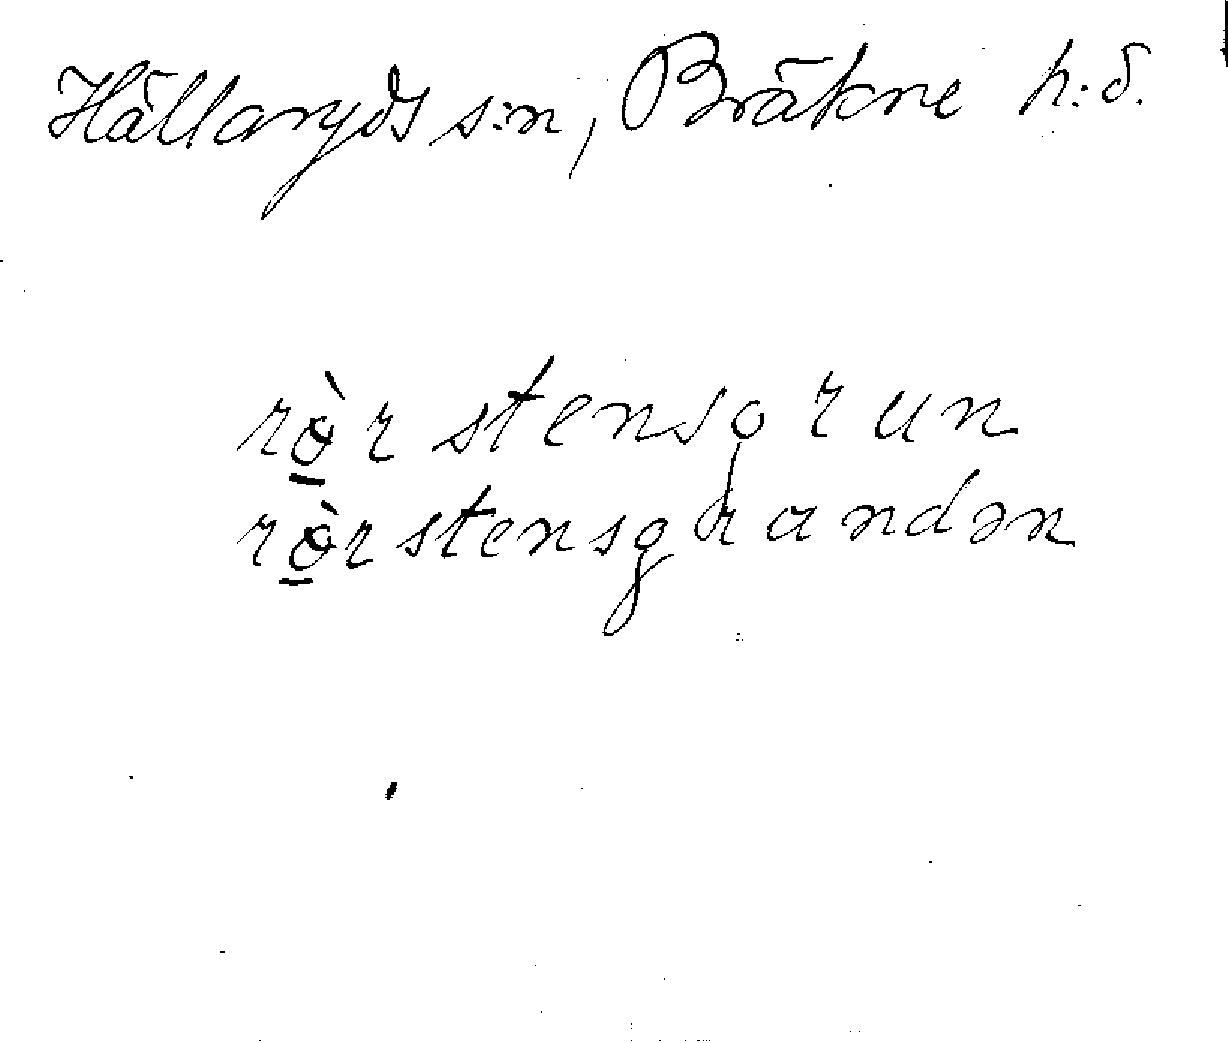 Hällaryds s:n, Bräkne h:d.
rø̠̀rstensgrun
rø̠̀rstensgrandən